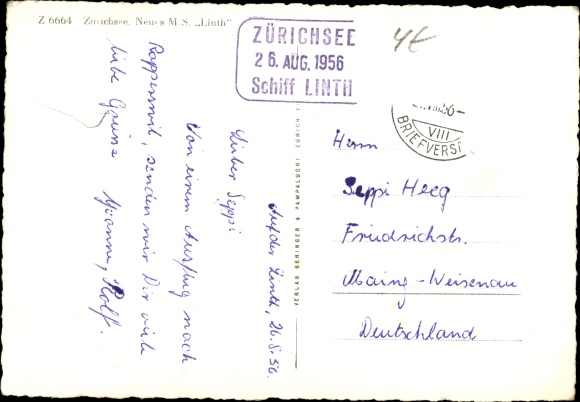 Z 6664 Zürichsee. Neues M.S. „Linth"
ZÜRICHSEE
26. AUG. 1956
Schiff LINTH
4€
VIII
BRIEFVERS
VERLAG BERINGER & PAMPALUCHI ZÜRICH
Auf der Linth, 26.8.56.
Lieber Seppi
Von einem Ausflug nach
Rapperswil, senden wir Dir viele
liebe Grüsse Yvonne, Rolf.
Herrn
Seppi Heeg
Friedrichstr.
Mainz-Weisenau
Deutschland